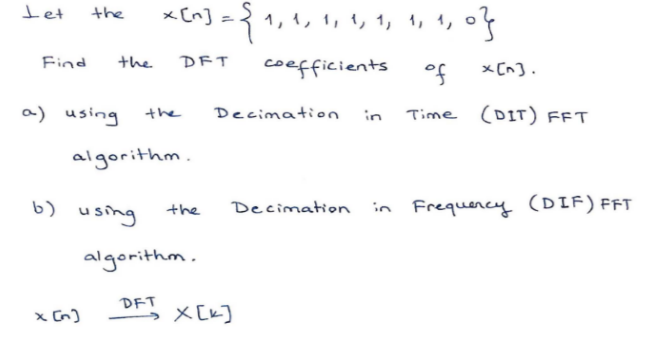 Let the x[n] = { 1, 1, 1, 1, 1, 1, 1, 0}
Find the DFT coefficients of x[n].
a) using the Decimation in Time (DIT) FFT
algorithm.
b) using the Decimation in Frequency (DIF) FFT
algorithm.
x[n] DFT→ X[k]